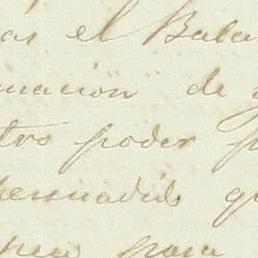 as el Bala
uacion de
tro poder p
persuadido q
para